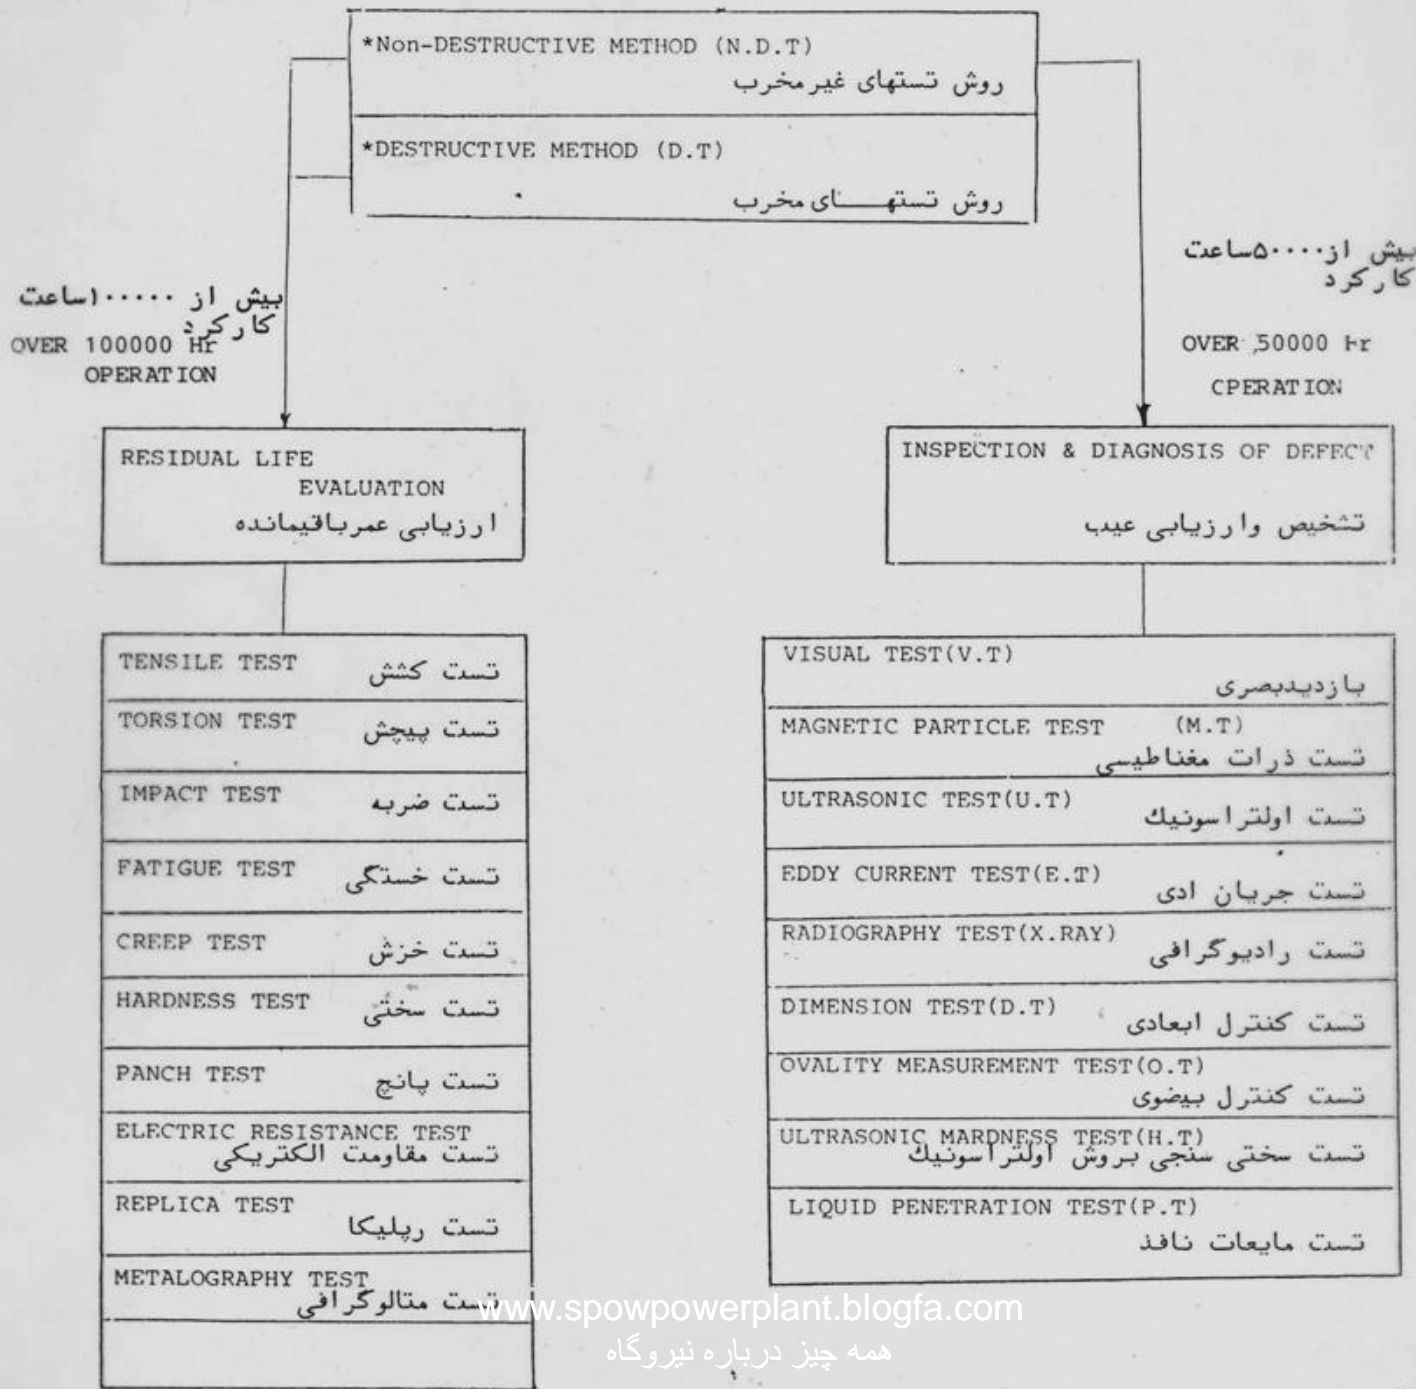 *Non-DESTRUCTIVE METHOD (N.D.T)
روش تستهای غیرمخرب
*DESTRUCTIVE METHOD (D.T)
روش تستهـــــای مخرب
بیش از ۱۰۰۰۰۰ساعت
کارکرد
OVER 100000 Hr
OPERATION
بیش از ۵۰۰۰۰ساعت
کارکرد
OVER 50000 Hr
CPERATION
RESIDUAL LIFE
EVALUATION
ارزیابی عمرباقیمانده
INSPECTION & DIAGNOSIS OF DEFECT
تشخیص وارزیابی عیب
TENSILE TEST تست کشش
TORSION TEST تست پیچش
IMPACT TEST تست ضربه
FATIGUE TEST تست خستگی
CREEP TEST تست خزش
HARDNESS TEST تست سختی
PANCH TEST تست پانچ
ELECTRIC RESISTANCE TEST
تست مقاومت الکتریکی
REPLICA TEST
تست رپلیکا
METALOGRAPHY TEST
تست متالوگرافی
VISUAL TEST(V.T)
بازدیدبصری
MAGNETIC PARTICLE TEST (M.T)
تست ذرات مغناطیسی
ULTRASONIC TEST(U.T)
تست اولتراسونیك
EDDY CURRENT TEST(E.T)
تست جریان ادی
RADIOGRAPHY TEST(X.RAY)
تست رادیوگرافی
DIMENSION TEST(D.T)
تست کنترل ابعادی
OVALITY MEASUREMENT TEST(O.T)
تست کنترل بیضوی
ULTRASONIC MARDNESS TEST(H.T)
تست سختی سنجی بروش اولتراسونیك
LIQUID PENETRATION TEST(P.T)
تست مایعات نافذ
www.spowpowerplant.blogfa.com
همه چیز درباره نیروگاه